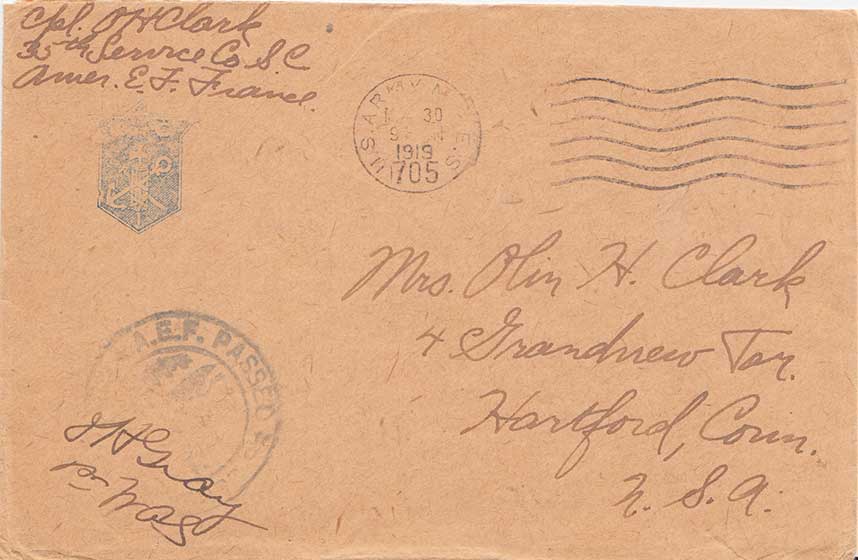 Cpl. O H Clark
35th Service Co S C
Amer. E. F. France.
U.S. ARMY M.P.E.S.
30
1919
705
Mrs. Olin H. Clark
4 Grandview Ter.
Hartford, Conn.
U. S. A.
A.E.F. PASSED AS
Gray